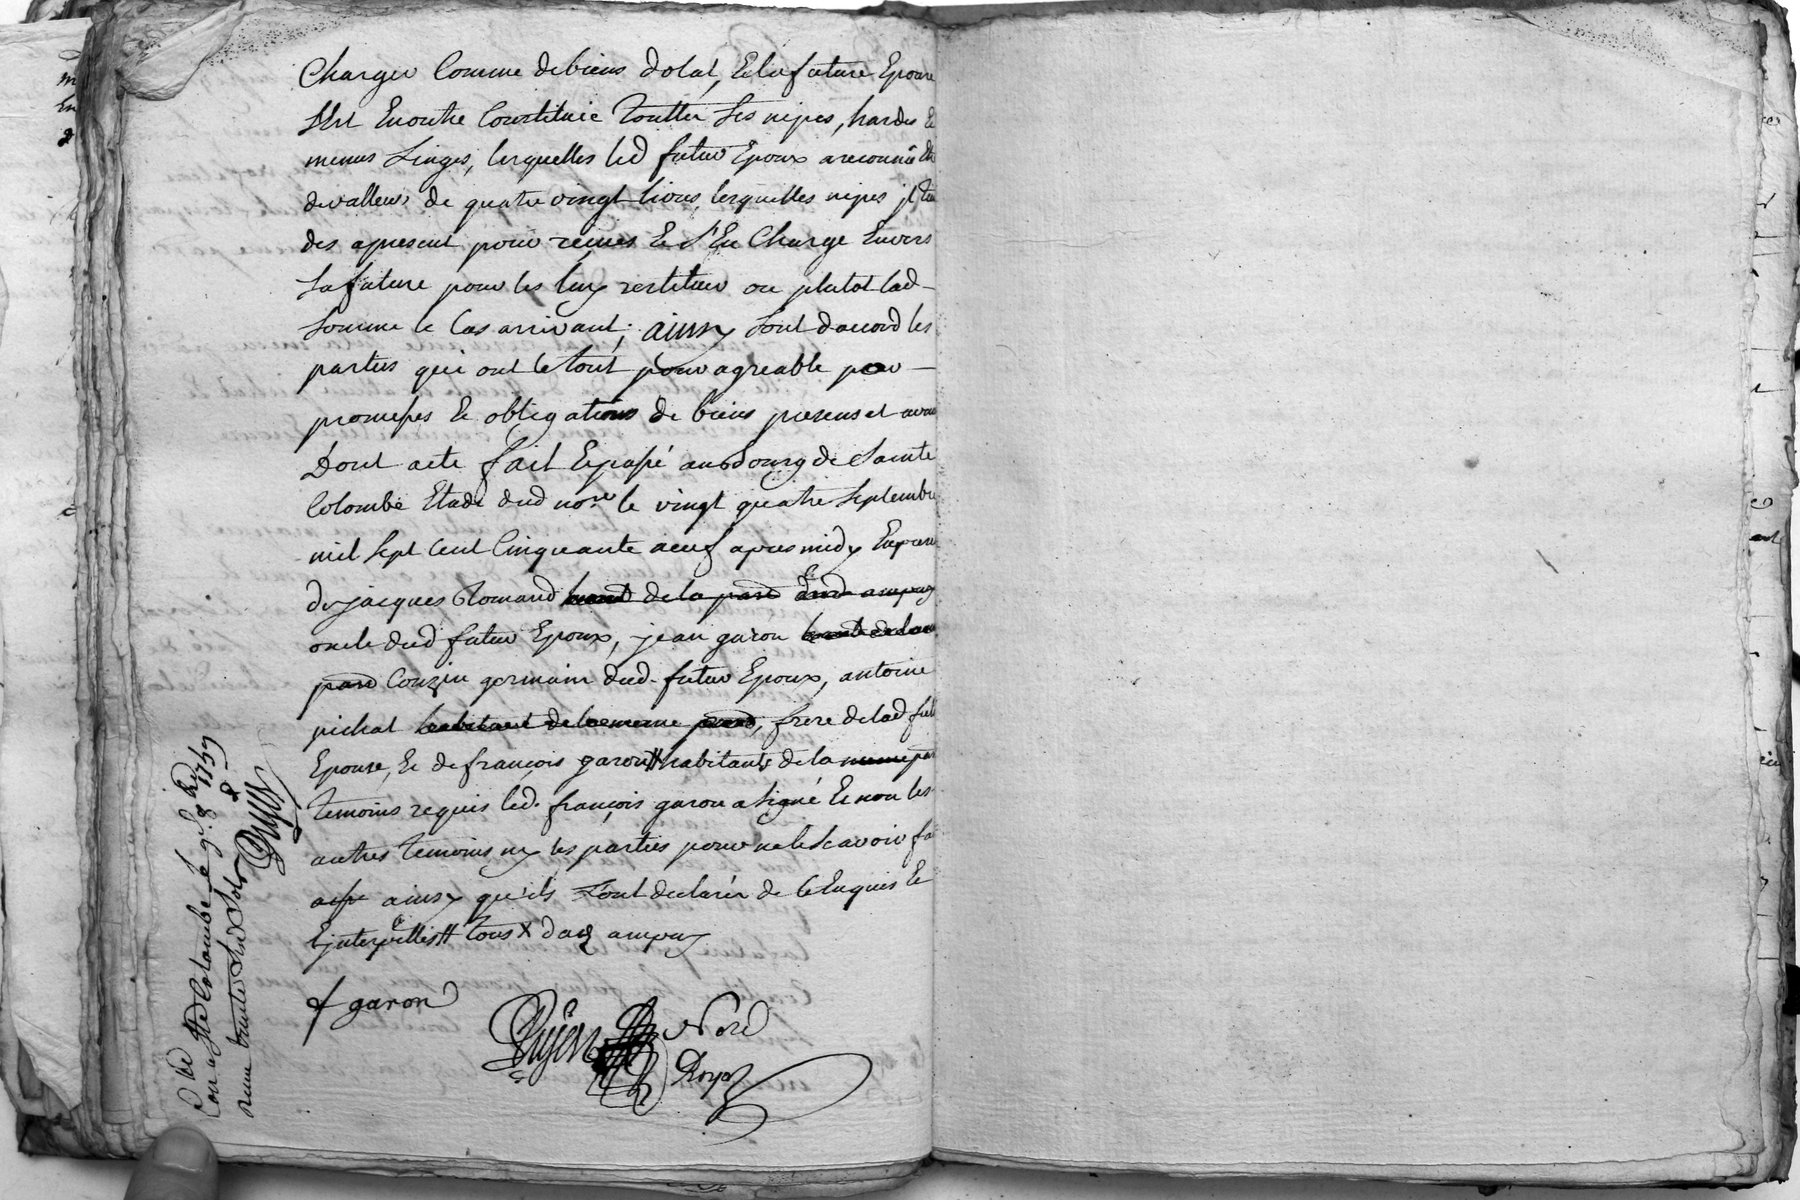 Charger Comme de biens dotal, Et la future Epouse
s'est Enoutre Constituée touttes ses nipes, hardes Et
menus Linges, lesquelles led futur Epoux a reconnu Etre
de valleur de quatre vingt livres, lesquelles nipes jl tien
des apresent pour reçues Et s'En Charge Envers
la future pour les luy restituer ou plutot lad
somme le Cas arrivant; ainsy sont d'accord les
parties qui ont le tout pour agreable par
promesses Et obligations de biens presens et aven
Dont acte fait Et passé au bourg de Sainte
Colombe Etude dud no.re le vingt quatre septembre
mil sept Cent Cinquante neuf apres midy En presen
de jacques Romand habit de la parr dud ampuy
oncle dud futur Epoux, jean garon
parr Couzin germain dud. futur Epoux, antoine
pichat habitant de la meme parr, frere de lad fut
Epouse, Et de françois garon # habitants de la meme par
temoins requis led. françois garon a signé Et non les
autres temoins ny les parties pour ne le scavoir fa
ainsy qu'ils L'ont declarés de ce Enquis Et
Ejnterpellés # tous X d'ampuy
f garon
Nore
Royal
Con a Ste Colombe le 8 1759